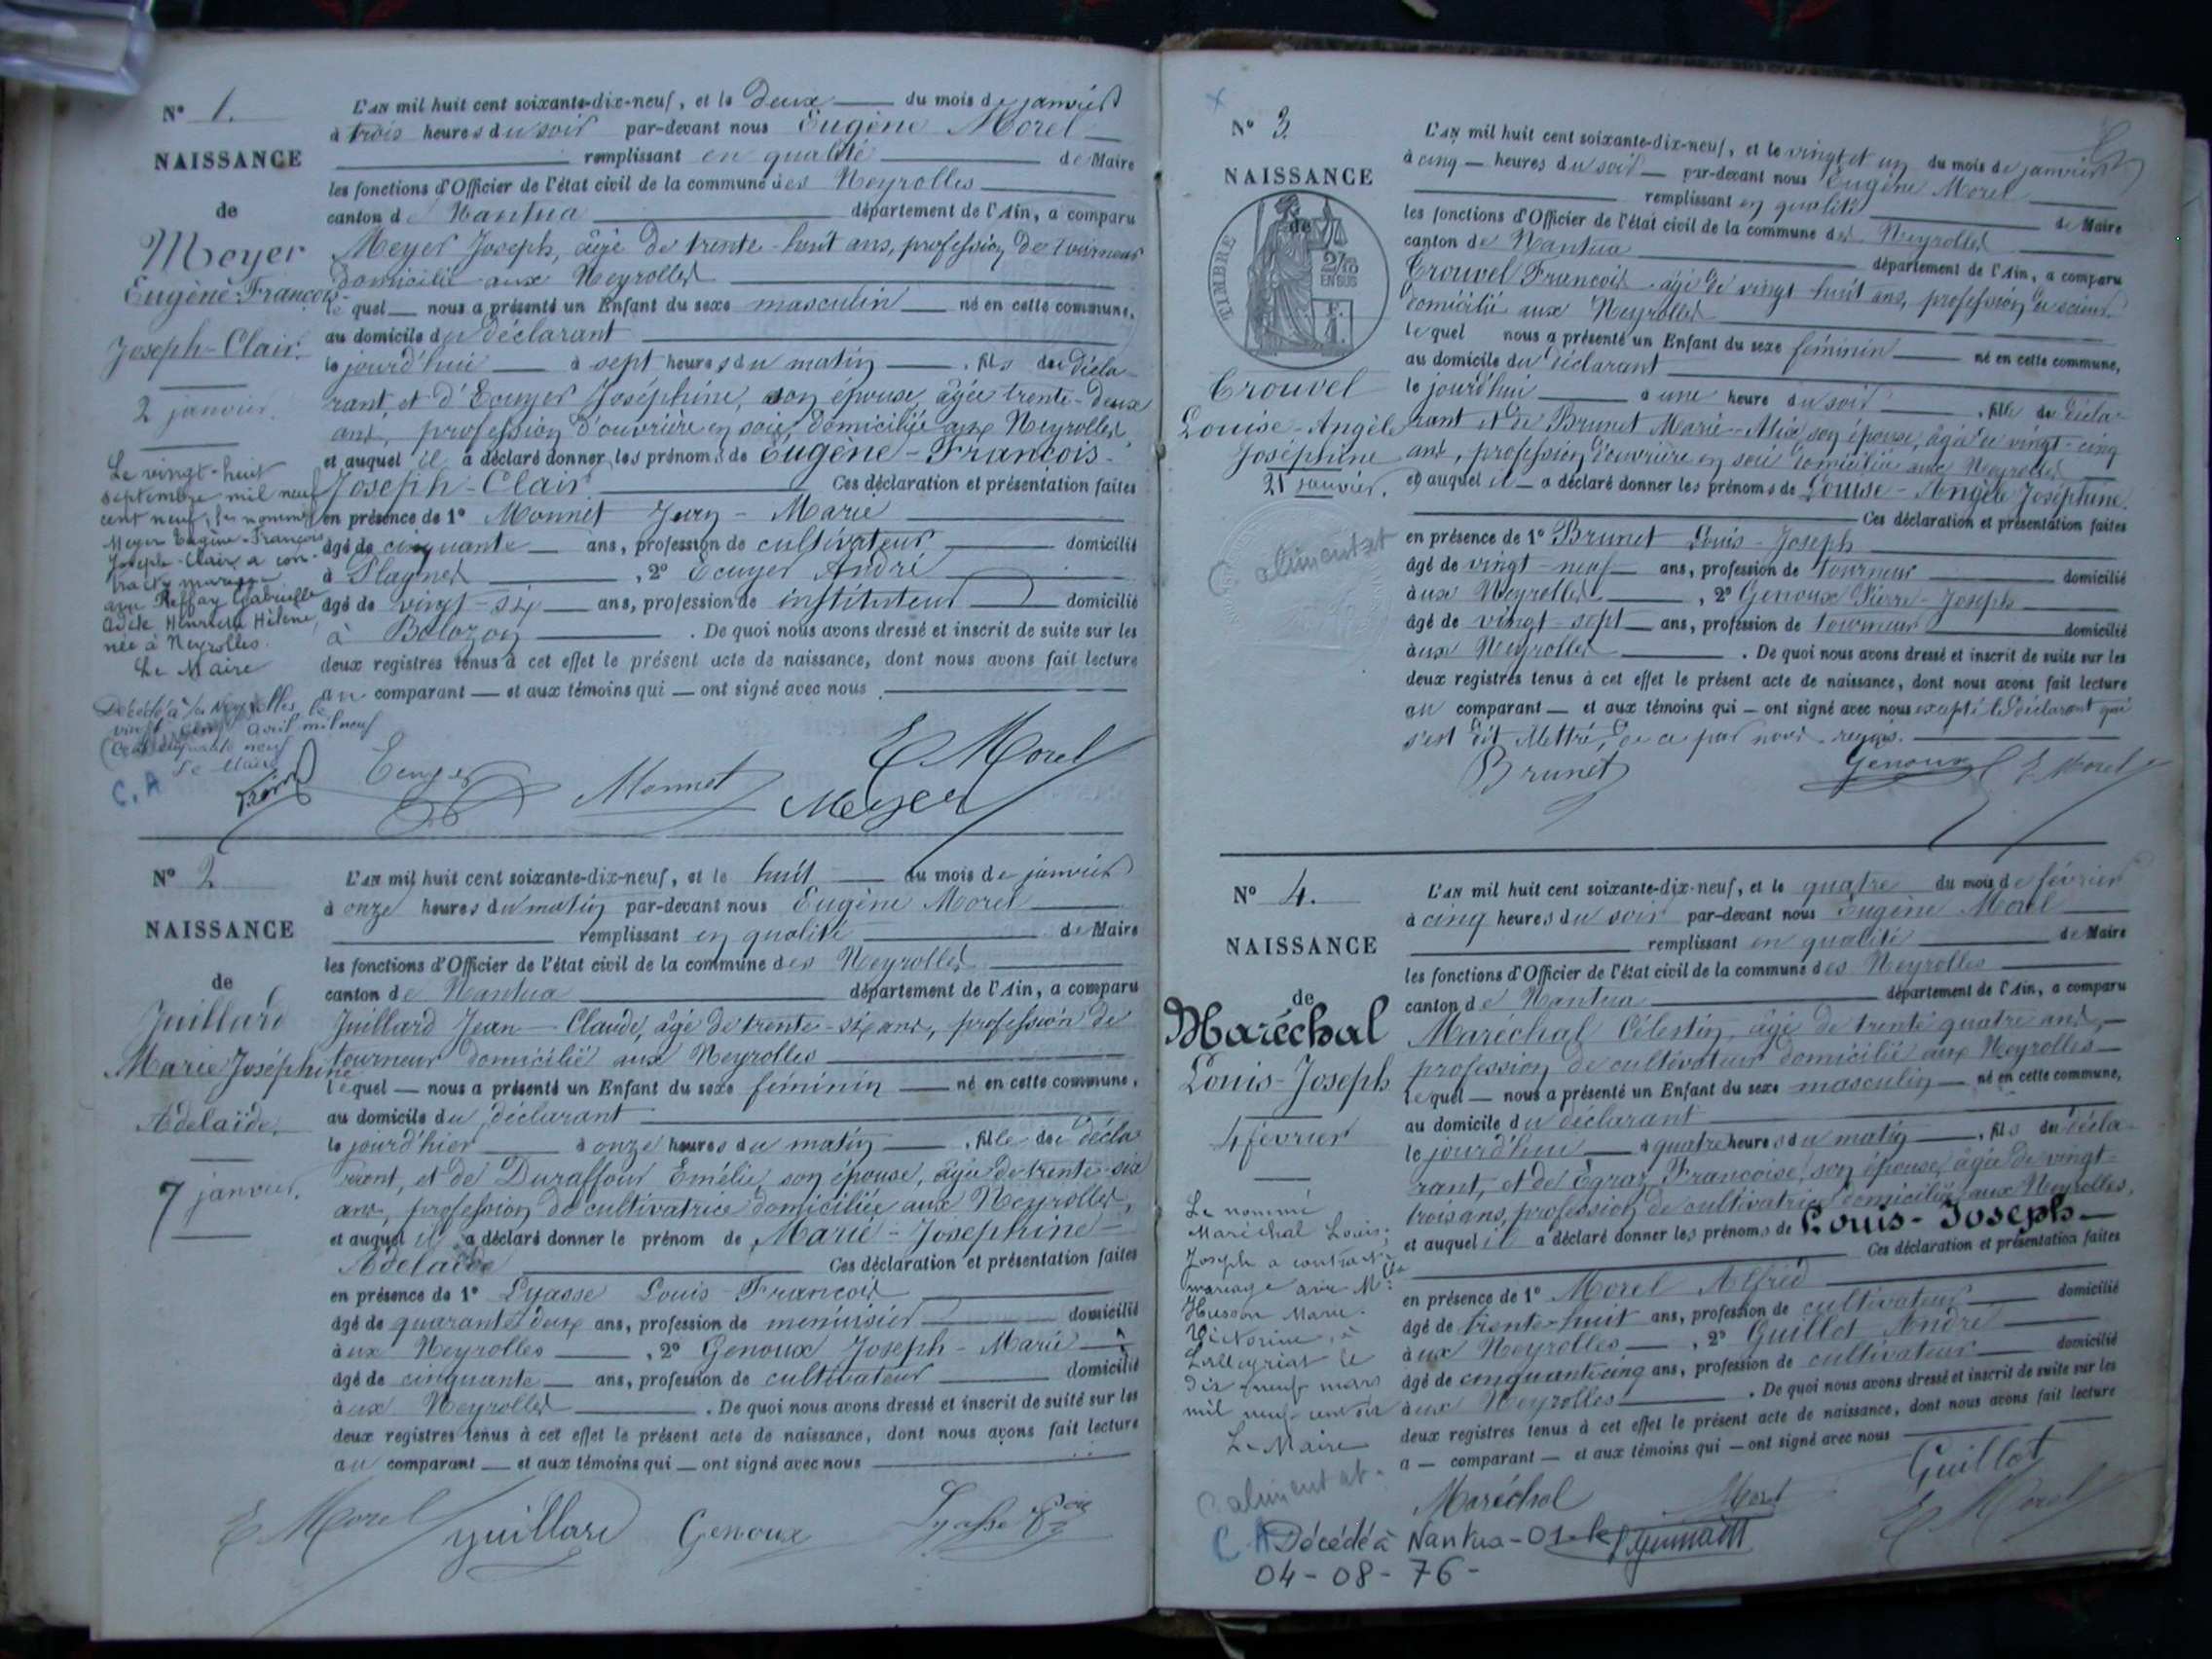 N° 1.
NAISSANCE
de
Meyer
Eugène-François-
Joseph-Clair.
2 janvier.
Le vingt-huit
septembre mil neuf
cent neuf, le nommé
Meyer Eugène-François
Joseph-Clair a con-
tracté mariage
avec Reffay Gabrielle
Adèle Henriette Hélène,
née à Neyrolles.
Le Maire
Décédé à les Neyrolles le
vingt cinq avril mil neuf
cent cinquante neuf
Le Maire
C.A
L'AN mil huit cent soixante-dix-neuf, et le deux du mois de janvier
à trois heures du soir par-devant nous Eugène Morel
remplissant en qualité de Maire
les fonctions d'Officier de l'état civil de la commune des Neyrolles
canton de Nantua département de l'Ain, a comparu
Meyer Joseph, âgé de trente-huit ans, profession de tourneur
domicilié aux Neyrolles
lequel nous a présenté un Enfant du sexe masculin né en cette commune,
au domicile du déclarant
le jourd'hui à sept heures du matin, fils du décla-
rant, et d'Ecuyer Joséphine, son épouse, âgée trente-deux
ans, profession d'ouvrière en soie, domiciliée aux Neyrolles,
et auquel il a déclaré donner les prénoms de Eugène-François-
Joseph-Clair Ces déclaration et présentation faites
en présence de 1° Monnet Jury-Marie
âgé de cinquante ans, profession de cultivateur domicilié
à Plagnes, 2° Ecuyer André
âgé de vingt-six ans, profession de instituteur domicilié
à Bolozon. De quoi nous avons dressé et inscrit de suite sur les
deux registres tenus à cet effet le présent acte de naissance, dont nous avons fait lecture
au comparant et aux témoins qui ont signé avec nous.
Ecuyer Monnet Meyer E Morel
N° 2.
NAISSANCE
de
Juillard
Marie Joséphine
Adelaïde.
7 janvier.
L'AN mil huit cent soixante-dix-neuf, et le huit du mois de janvier
à onze heures du matin par-devant nous Eugène Morel
remplissant en qualité de Maire
les fonctions d'Officier de l'état civil de la commune des Neyrolles
canton de Nantua département de l'Ain, a comparu
Juillard Jean-Claude, âgé de trente-six ans, profession de
tourneur domicilié aux Neyrolles
lequel nous a présenté un Enfant du sexe féminin né en cette commune,
au domicile du déclarant
le jourd'hier à onze heures du matin, fille du décla
rant, et de Duraffour Emélie, son épouse, âgée de trente-six
ans, profession de cultivatrice domiciliée aux Neyrolles,
et auquel il a déclaré donner le prénom de Marie-Joséphine-
Adelaïde Ces déclaration et présentation faites
en présence de 1° Lyasse Louis François
âgé de quarante-deux ans, profession de menuisier domicilié
aux Neyrolles, 2° Genoux Joseph-Marie
âgé de cinquante ans, profession de cultivateur domicilié
aux Neyrolles. De quoi nous avons dressé et inscrit de suite sur les
deux registres tenus à cet effet le présent acte de naissance, dont nous avons fait lecture
au comparant et aux témoins qui ont signé avec nous
E Morel Juillard Genoux Lyasse
N° 3.
NAISSANCE
de
TIMBRE
2/10
EN SUS
Crouvel
Louise-Angèle
Joséphine
21 janvier.
L'AN mil huit cent soixante-dix-neuf, et le vingt et un du mois de janvier
à cinq heures du soir par-devant nous Eugène Morel
remplissant en qualité de Maire
les fonctions d'Officier de l'état civil de la commune des Neyrolles
canton de Nantua département de l'Ain, a comparu
Crouvel François âgé de vingt-huit ans, profession de scieur
domicilié aux Neyrolles
lequel nous a présenté un Enfant du sexe féminin né en cette commune,
au domicile du déclarant
le jourd'hui à une heure du soir, fille du décla-
rant et de Brunet Marie-Alix, son épouse, âgée de vingt-cinq
ans, profession d'ouvrière en soie domiciliée aux Neyrolles
et auquel il a déclaré donner les prénoms de Louise-Angèle Joséphine.
Ces déclaration et présentation faites
en présence de 1° Brunet Louis-Joseph
âgé de vingt-neuf ans, profession de tourneur domicilié
aux Neyrolles, 2° Genoux Pierre-Joseph
âgé de vingt-sept ans, profession de tourneur domicilié
aux Neyrolles. De quoi nous avons dressé et inscrit de suite sur les
deux registres tenus à cet effet le présent acte de naissance, dont nous avons fait lecture
au comparant et aux témoins qui ont signé avec nous excepté le déclarant qui
s'est dit illettré, de ce par nous requis.
Brunet Genoux E Morel
N° 4.
NAISSANCE
de
Maréchal
Louis-Joseph
4 février
Le nommé
Maréchal Louis-
Joseph a contracté
mariage avec Mlle
Husson Marie-
Victorine, à
Lalleyriat le
dix-neuf mars
mil neuf cent six
Le Maire
L'AN mil huit cent soixante-dix-neuf, et le quatre du mois de février
à cinq heures du soir par-devant nous Eugène Morel
remplissant en qualité de Maire
les fonctions d'Officier de l'état civil de la commune des Neyrolles
canton de Nantua département de l'Ain, a comparu
Maréchal Célestin, âgé de trente quatre ans,
profession de cultivateur domicilié aux Neyrolles
lequel nous a présenté un Enfant du sexe masculin né en cette commune,
au domicile du déclarant
le jourd'hui à quatre heures du matin, fils du décla-
rant, et de Egraz Françoise, son épouse, âgée de vingt-
trois ans, profession de cultivatrice domiciliée aux Neyrolles,
et auquel il a déclaré donner les prénoms de Louis-Joseph
Ces déclaration et présentation faites
en présence de 1° Morel Alfred
âgé de trente-huit ans, profession de cultivateur domicilié
aux Neyrolles, 2° Guillot André
âgé de cinquante cinq ans, profession de cultivateur domicilié
aux Neyrolles. De quoi nous avons dressé et inscrit de suite sur les
deux registres tenus à cet effet le présent acte de naissance, dont nous avons fait lecture
a comparant et aux témoins qui ont signé avec nous
Maréchal Morel Guillot E Morel
C.A Décédé à Nantua-01- le
04-08-76-